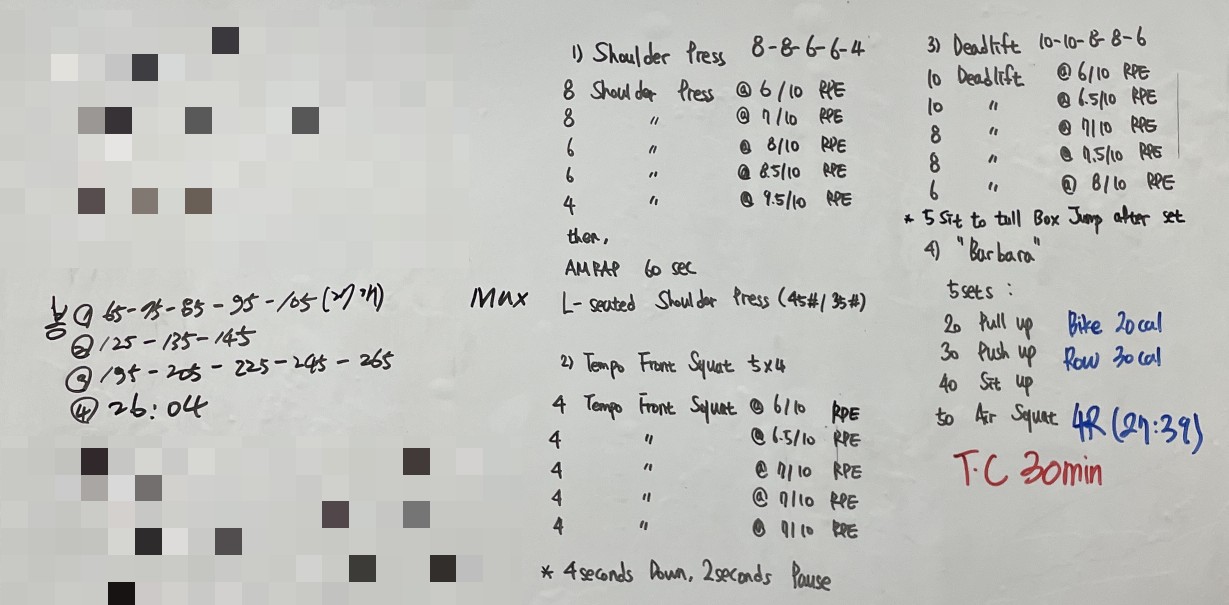 봉 ① 65-75-85-95-105 (27개)
② 125-135-145
③ 195-205-225-245-265
④ 26:04
1) Shoulder Press 8-8-6-6-4
8 Shoulder Press @ 6/10 RPE
8 〃 @ 7/10 RPE
6 〃 @ 8/10 RPE
6 〃 @ 8.5/10 RPE
4 〃 @ 9.5/10 RPE
then,
AMRAP 60 sec
Max L-seated Shoulder Press (45#/35#)
2) Tempo Front Squat 5x4
4 Tempo Front Squat @ 6/10 RPE
4 〃 @ 6.5/10 RPE
4 〃 @ 7/10 RPE
4 〃 @ 7/10 RPE
4 〃 @ 7/10 RPE
* 4seconds Down, 2seconds Pause
3) Deadlift 10-10-8-8-6
10 Deadlift @ 6/10 RPE
10 〃 @ 6.5/10 RPE
8 〃 @ 7/10 RPE
8 〃 @ 7.5/10 RPE
6 〃 @ 8/10 RPE
* 5 Sit to tall Box Jump after set
4) "Barbara"
5sets :
20 Pull up Bike 20cal
30 Push up Row 30cal
40 Sit up
50 Air Squat 4R (27:39)
T.C 30min